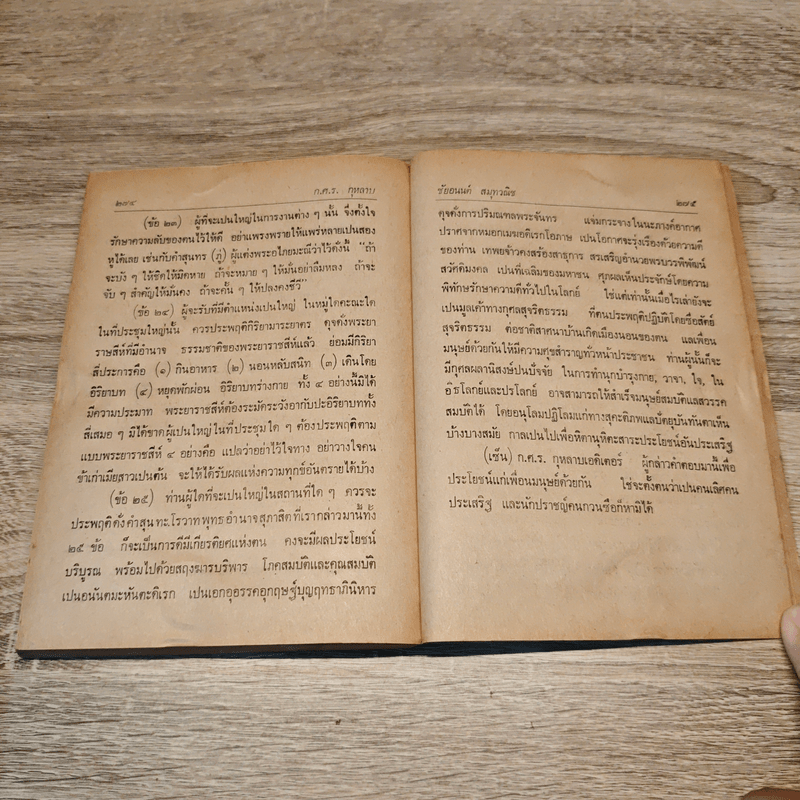 ๒๗๔ ก.ศ.ร. กุหลาบ
(ข้อ ๒๓) ผู้ที่จะเปนใหญ่ในการงานต่าง ๆ นั้น จึงตั้งใจ
รักษาความลับของตนไว้ให้ดี อย่าแพร่งพรายให้แพร่หลายเปนสอง
หูได้เลย เช่นกับคำสุนทร (ภู่) ผู้แต่งพระอไภยมณีว่าไว้ดั่งนี้ "ถ้า
จะบัง ๆ ให้ชิดให้มิดหาย ถ้าจะหมาย ๆ ให้มั่นอย่าลืมหลง ถ้าจะ
จับ ๆ สำคัญให้มั่นคง ถ้าจะคั้น ๆ ให้ปลงคงชีวี"
(ข้อ ๒๔) ผู้จะรับที่มีตำแหน่งเปนใหญ่ ในหมู่ใดคณะใด
ในที่ประชุมใหญ่นั้น ควรประพฤติกิริยามารยาตร ดุจดั่งพระยา
ราชสีห์ที่มีอำนาจ ธรรมชาติของพระยาราชสีห์แล้ว ย่อมมีกิริยา
สี่ประการคือ (๑) กินอาหาร (๒) นอนหลับสนิท (๓) เดินโดย
อิริยาบท (๔) หยุดพักผ่อน อิริยาบทร่างกาย ทั้ง ๔ อย่างนี้มิได้
มีความประมาท พระยาราชสีห์ต้องระมัดระวังอากัปะอิริยาบททั้ง
สี่เสมอ ๆ มิได้ขาดผู้เปนใหญ่ในที่ประชุมใด ๆ ต้องประพฤติตาม
แบบพระยาราชสีห์ ๔ อย่างคือ แปลว่าอย่าไว้ใจทาง อย่าวางใจคน
ข้าเก่าเมียสาวเปนต้น จะให้ได้รับผลแห่งความทุกข์อันตรายได้บ้าง
(ข้อ ๒๕) ท่านผู้ใดที่จะเปนใหญ่ในสถานที่ใด ๆ ควรจะ
ประพฤติดั่งคำสุนทะโรวาทพุทธอำนาจสุภาสิตที่เรากล่าวมานี้ทั้ง
๒๕ ข้อ ก็จะเป็นการดีมีเกียรติยศแห่งตน คงจะมีผลประโยชน์
บริบูรณ พร้อมไปด้วยสฤงฆารบริพาร โภคสมบัติและคุณสมบัติ
เปนอนันตมะหันตะดิเรก เปนเอกอุอรรคอุกฤษฐ์บุญฤทธาภินิหาร
ชัยอนนต์ สมุทวณิช ๒๗๕
ดุจดั่งการปริมณฑลพระจันทร แจ่มกระจางในนะภางค์อากาศ
ปราศจากหมอกเมฆอติเรกโอภาษ เปนโอกาศจะรุ่งเรืองด้วยความดี
ของท่าน เทพยจ้าวคงสร้องสาธุการ สรเสริญอำนวยพรบรรพิพัฒน์
สวัศดิมงคล เปนที่เฉลิมของมหาชน ศุภผลเห็นประจักษ์โดยความ
พิทักษรักษาความดีทั่วไปในโลกย์ ใช่แต่เท่านั้นเมื่อไรเล่ายังจะ
เปนมูลเค้าทางกุศลสุจริตธรรม ที่ตนประพฤติปฏิบัติโดยซื่อสัตย์
สุจริตธรรม ต่อชาติสาศนาบ้านเกิดเมืองนอนของตน แลเพื่อน
มนุษย์ด้วยกันให้มีความศุขสำราญทั่วหน้าประชาชน ท่านผู้นั้นก็จะ
มีกุศลผลานิสงษ์ปนปัจจัย ในการทำนุกบำรุงกาย, วาจา, ใจ, ใน
อิธโลกย์และปรโลกย์ อาจสามารถให้สำเร็จมนุษย์สมบัติแลสวรรค
สมบัติได้ โดยอนุโลมปฏิโลมแก่ทางสุคะติภพแลปัตยุบันทันตาเห็น
บ้างบางสมัย กาลเปนไปเพื่อหิตานุหิตะสาระประโยชน์อันประเสริฐ
(เซ็น) ก.ศ.ร. กุหลาบเอดิเตอร์ ผู้กล่าวคำตอบมานี้เพื่อ
ประโยชน์แก่เพื่อนมนุษย์ด้วยกัน ใช่จะตั้งตนว่าเปนคนเลิศคน
ประเสริฐ และนักปราชญ์คนกวนซือก็หามิได้